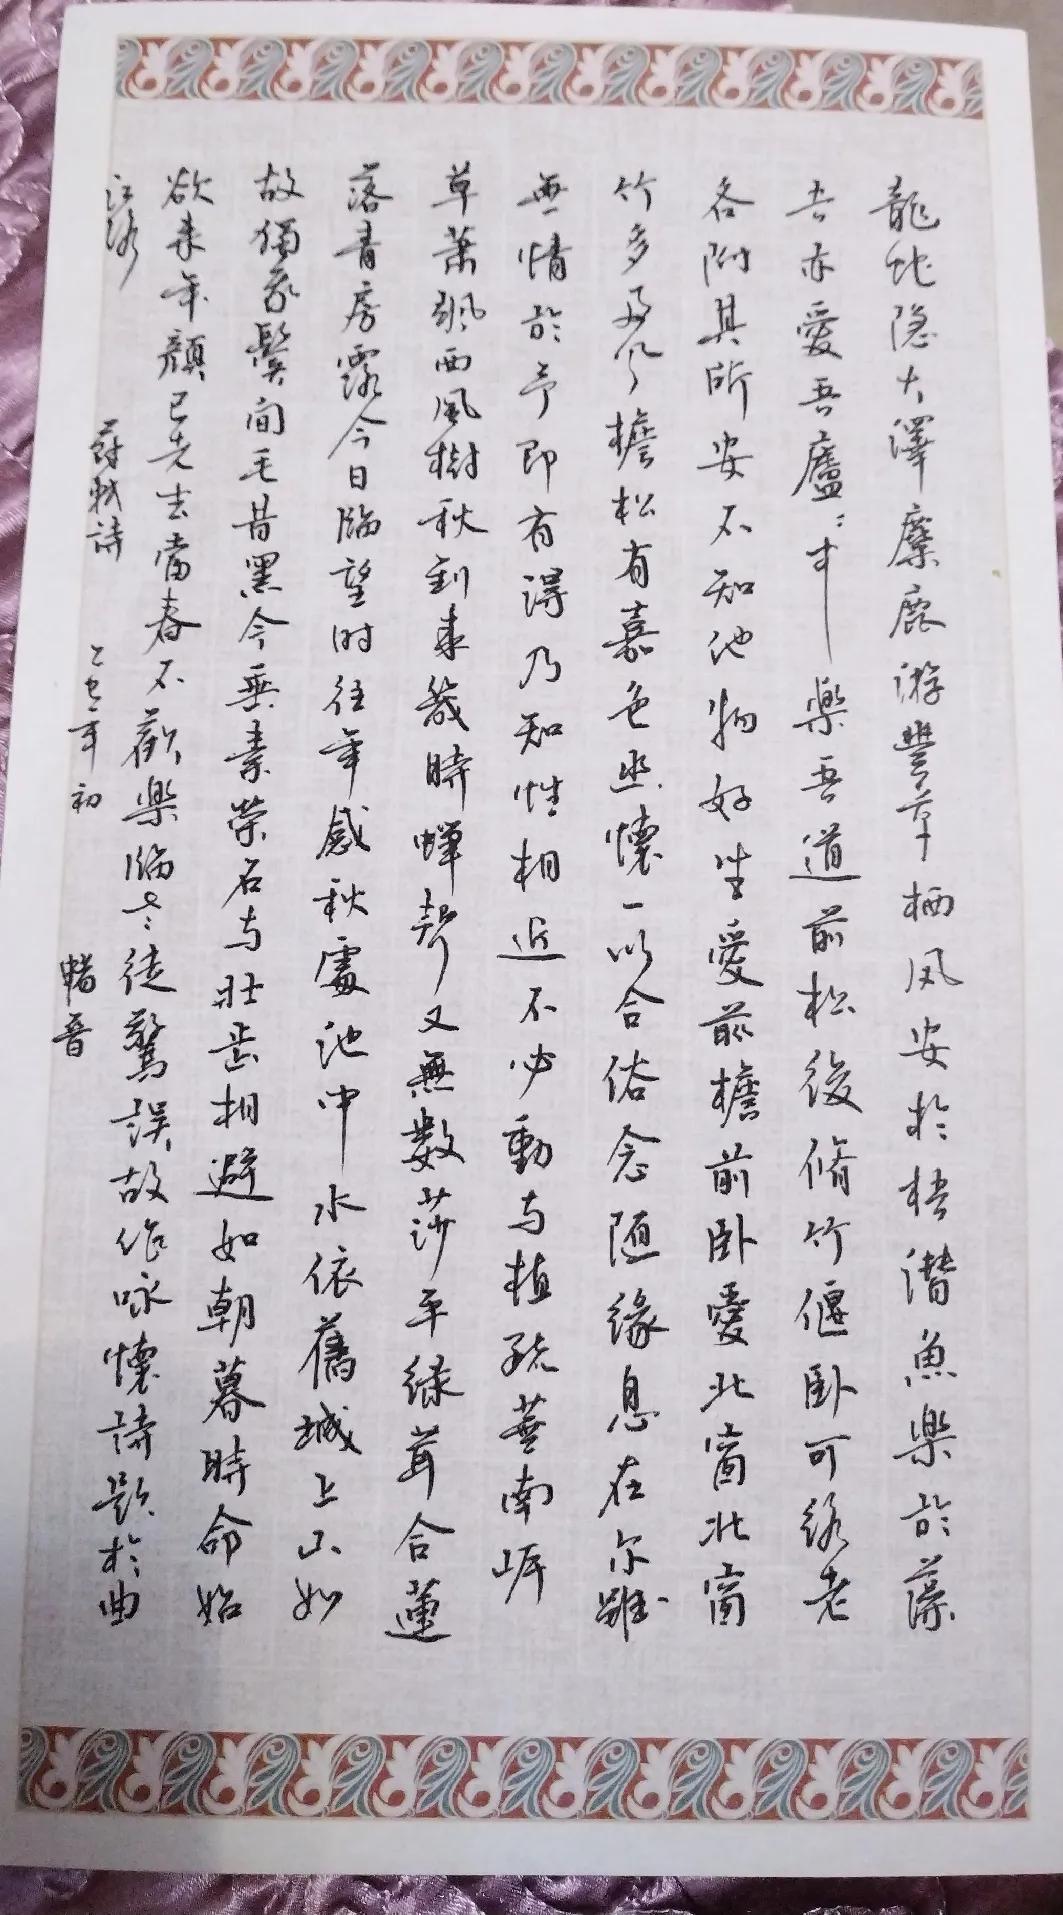 龍蛇隐大澤麋鹿游豐草栖凤安於梧潜魚樂於藻
吾亦愛吾廬::中樂吾道前松後脩竹偃卧可终老
各附其所安不知他物好坐愛前檐前卧愛北窗北窗
竹多好风檐松有嘉色幽懷一以合俗念随缘息在尔雖
無情於予即有得乃知性相近不必動与植 疏蕪南岸
草萧飒西風樹秋到未幾時蟬聲又無數莎平绿茸合蓮
落青房露今日臨望时往年感秋處池中水依舊城上山如
故獨我鬓间毛昔黑今垂素荣名与壮齿相避如朝暮時命始
欲来年顏已先去當春不歡樂臨老徒驚誤故作咏懷詩题於曲
江路
蘇軾詩 乙巳年初 晋